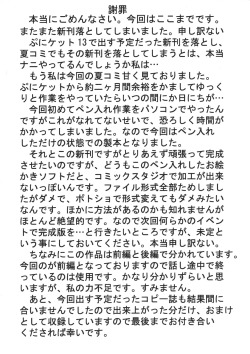 謝罪
本当にごめんなさい。今回はここまでです。
またまた新刊落としてしまいました。申し訳ない
ぷにケット13で出す予定だった新刊を落とし、
夏コミでもその新刊を落としてしまうとは、本当
ナニやってるんでしょうか私は…
もう私は今回の夏コミ甘く見ておりました。
ぷにケットから約二ヶ月間余裕をかましてゆっく
りと作業をやっていたらいつの間にか日にちが…
今回初めてペン入れ作業をパソコンでやったん
ですがこれがなれてないせいで、恐ろしく時間が
かかってしまいました。なので今回はペン入れ
しただけの状態での製本となりました。
それとこの新刊ですがとりあえず頑張って完成
させたいのですが、どうもこのペン入れしたお絵
かきソフトだと、コミックスタジオで加工が出来
ないっぽいんです。ファイル形式全部ためしまし
たがダメで、ポトショで形式変えてもダメみたい
なんです。ほかに方法があるのかも知れませんが
ほとんど絶望的です。なので次回何らかのイベン
トで完成版を…と行きたいところですが、未定と
いう事にしておいてください。本当申し訳ない。
ちなみにこの作品は前編と後編で分かれています。
今回のが前編となっておりますので話し途中で終
っているのは使用です。かなり分かりずらいと思
いますが、私の力不足です。すみません。
あと、今回出す予定だったコピー誌も結果間に
合いませんでしたので出来上がった分だけ、おまけ
として収録していますので最後までお付き合い
くだされば幸いです。